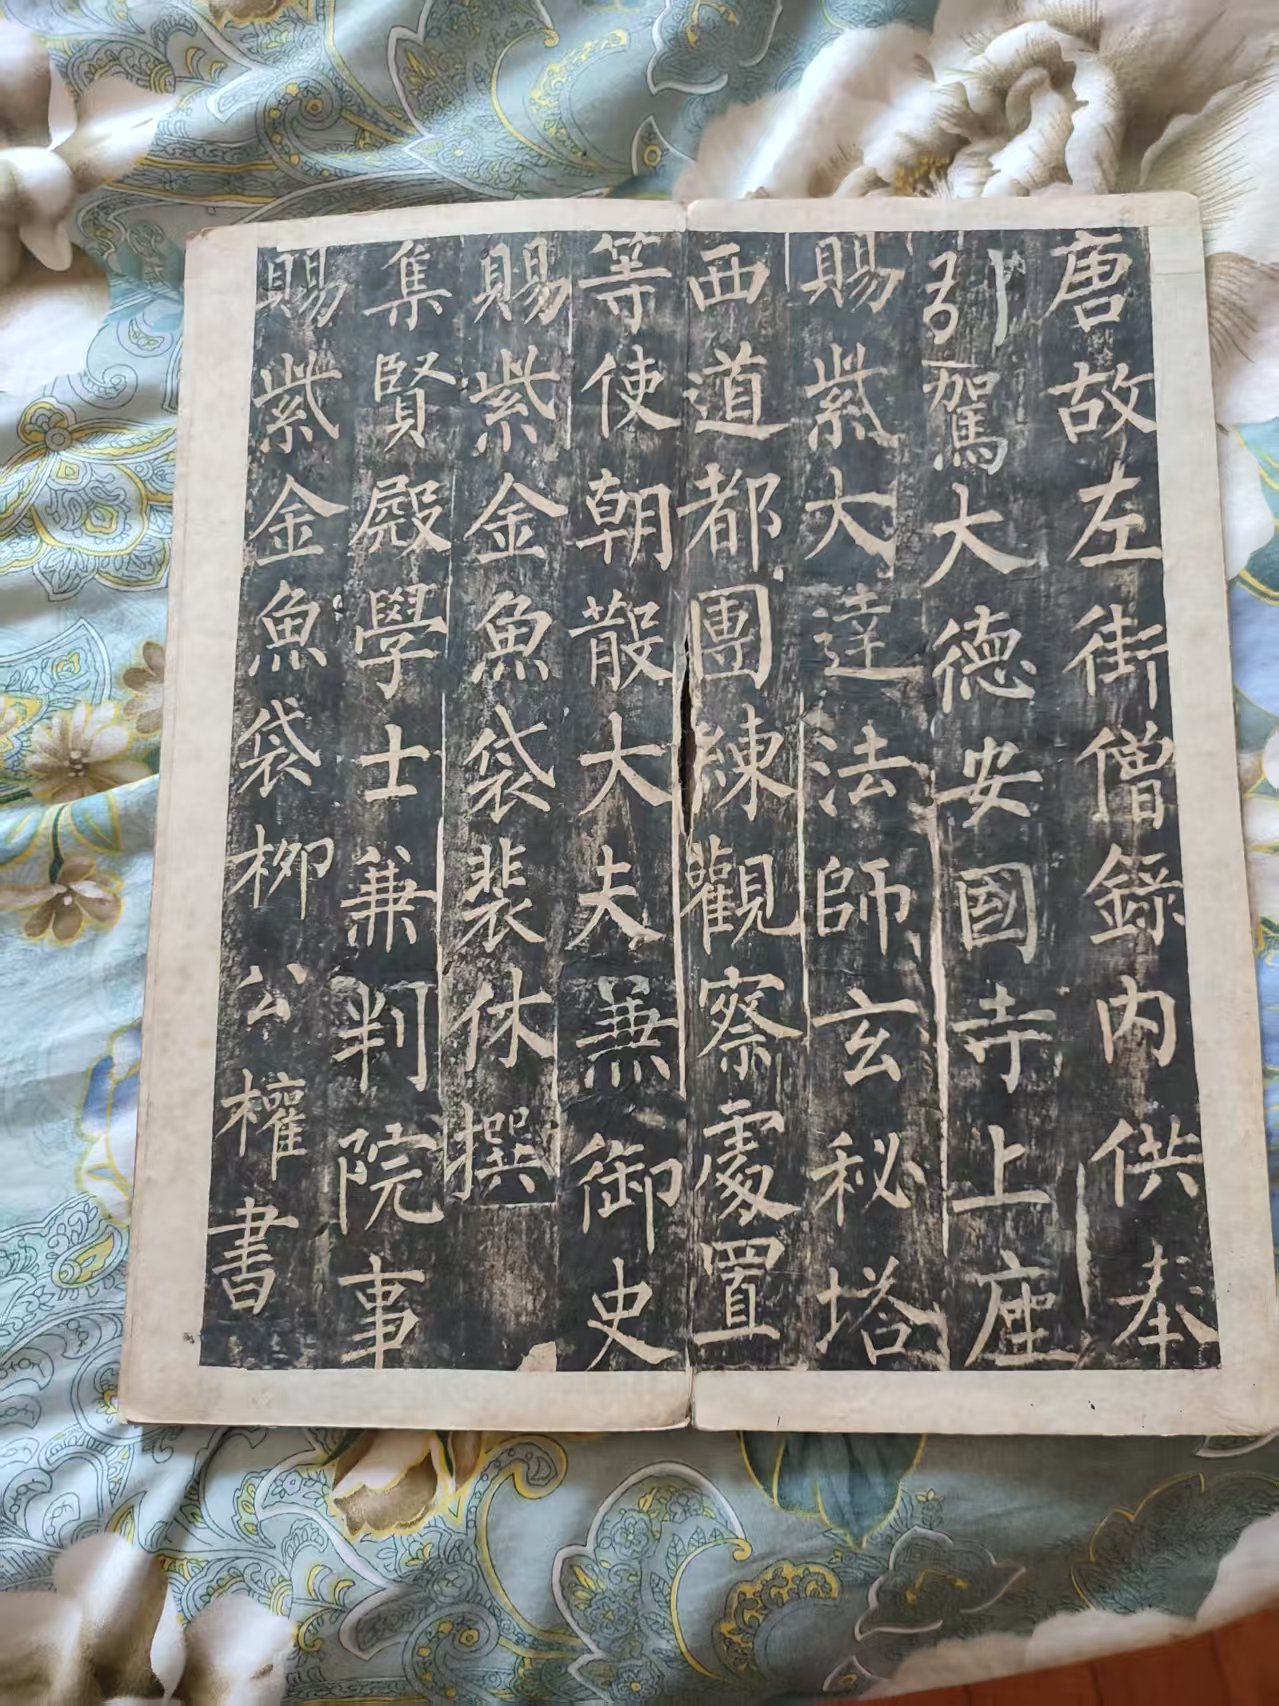 唐故左街僧錄内供奉
引駕大德安國寺上座
賜紫大達法師玄秘塔
西道都團練觀察處置
等使朝散大夫兼御史
賜紫金魚袋裴休撰
集賢殿學士兼判院事
賜紫金魚袋柳公權書